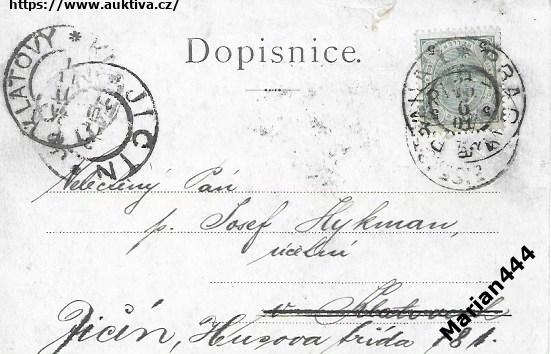 https://www.auktiva.cz/
Dopisnice.
KLATOVY
JIČÍN
PRAHA
Velectěný Pán
p. Josef Hykman,
učetní
v Klatovech
Jičín, Husova třída 181.
Marian444